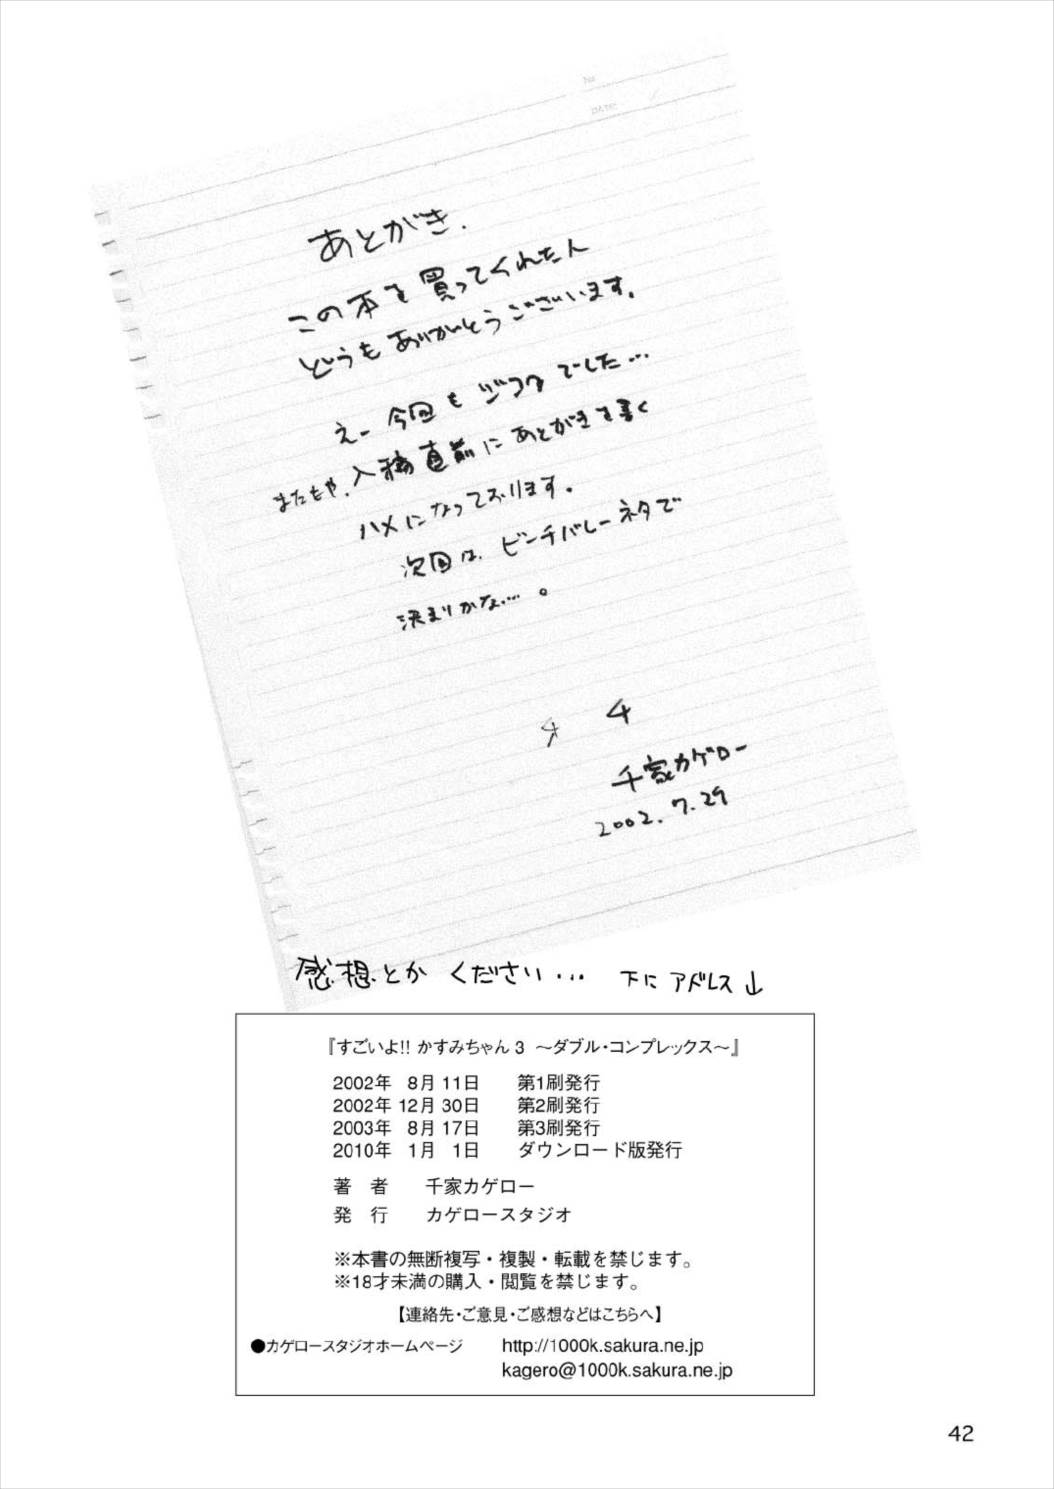 No.
DATE
あとがき.
この本を買ってくれた人
どうもありがとうございます。
えー今回もジゴクでした…
またもや、入稿直前にあとがきを書く
ハメになっております。
次回は、ピンチバレーネタで
決まりかな…。
千家カゲロー
2002.7.29
感想とかください… 下にアドレス↓
『すごいよ!! かすみちゃん 3 ～ダブル・コンプレックス～』
2002年 8月 11日 第1刷発行
2002年 12月 30日 第2刷発行
2003年 8月 17日 第3刷発行
2010年 1月 1日 ダウンロード版発行
著 者 千家カゲロー
発 行 カゲロースタジオ
※本書の無断複写・複製・転載を禁じます。
※18才未満の購入・閲覧を禁じます。
【連絡先・ご意見・ご感想などはこちらへ】
●カゲロースタジオホームページ http://1000k.sakura.ne.jp
kagero@1000k.sakura.ne.jp
42